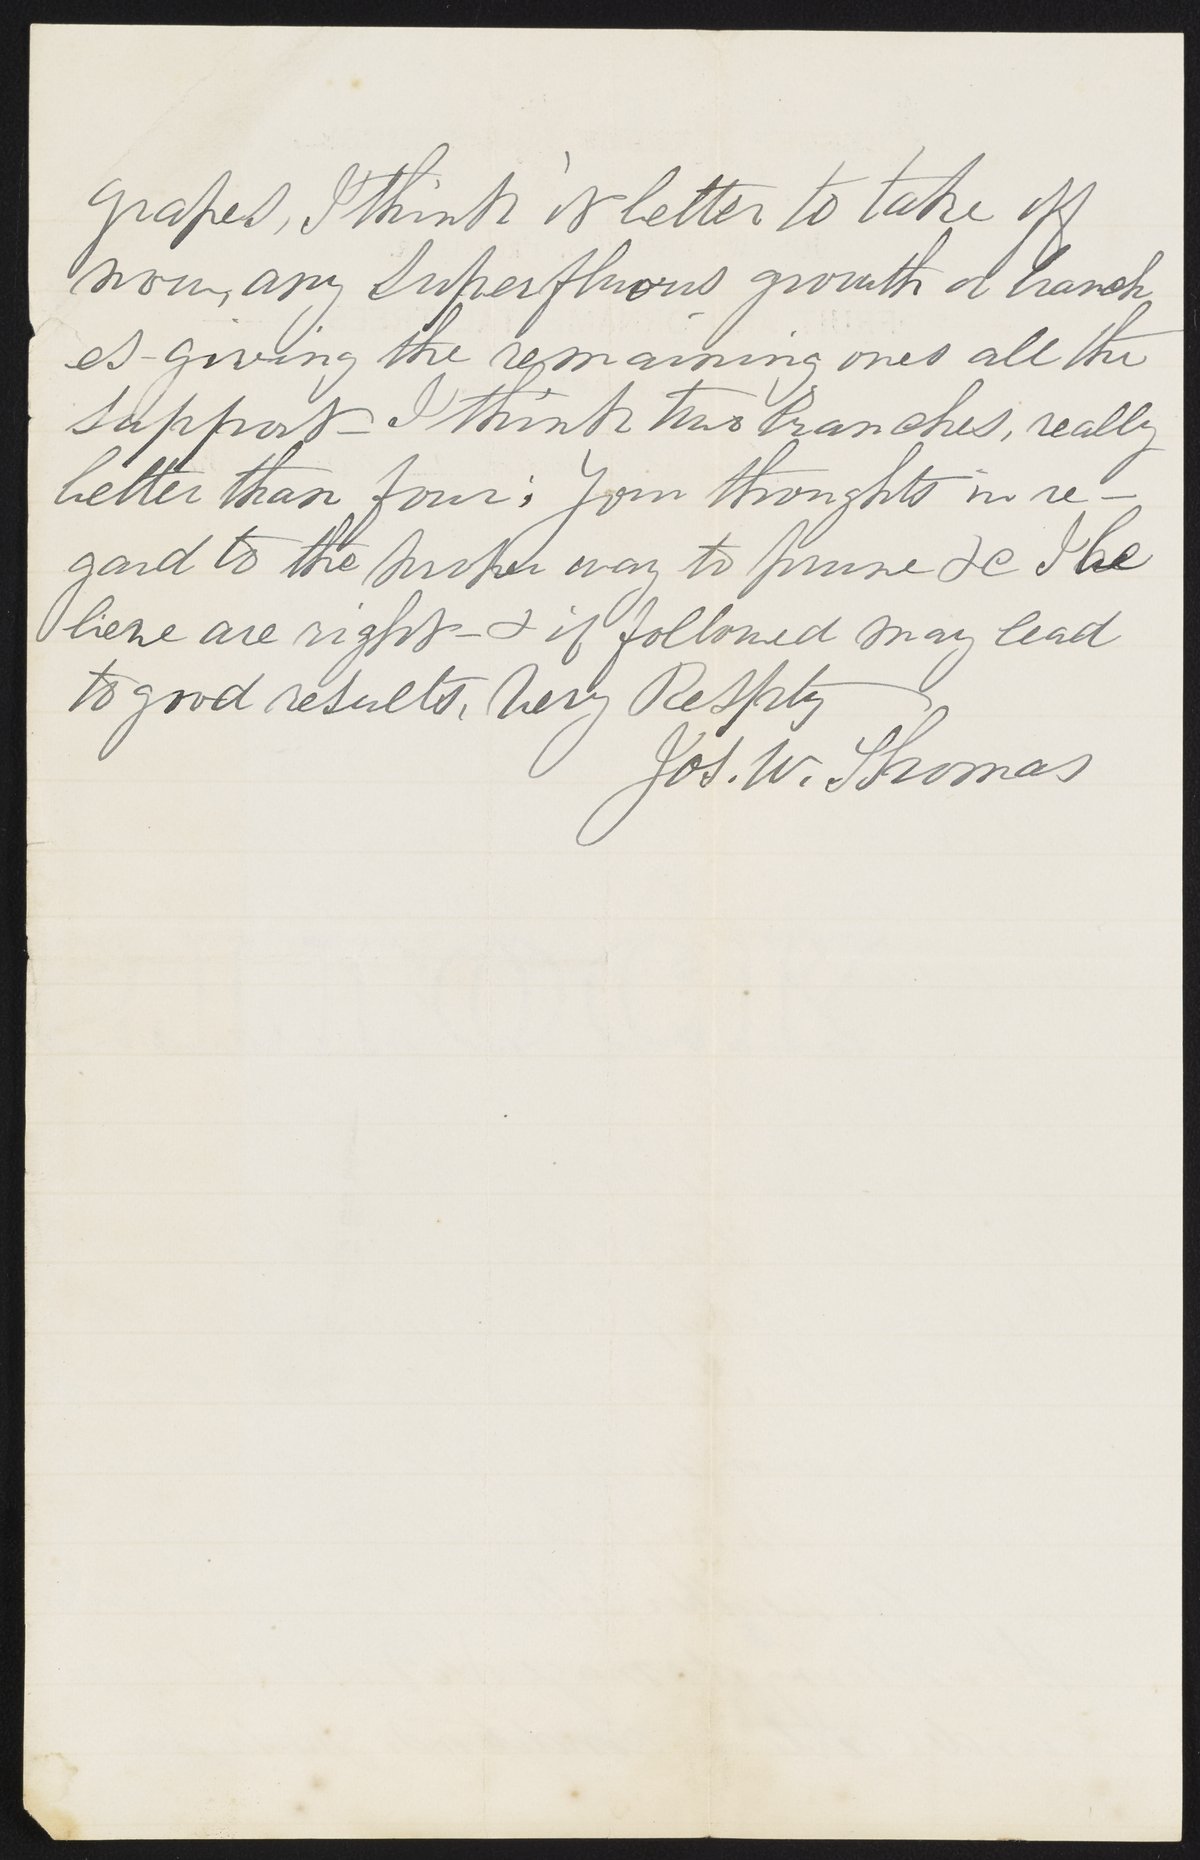 grapes, I think it better to take off
now, any superfluous growth or branch
es - giving the remaining ones all the
support - I think two branches, really
better than four; Your thoughts in re -
gard to the proper way to prune &c I be
lieve are right - & if followed may lead
to good results, Very Respty
Jos. W. Thomas